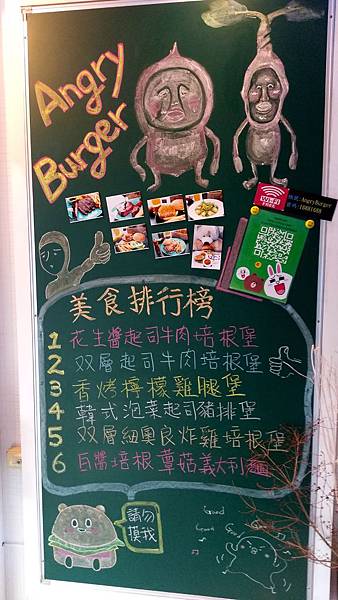 Angry
Burger
WiFi
帳號:AngryBurger
密碼:16881688
美食排行榜
1 花生醬起司牛肉培根堡
2 双層起司牛肉培根堡
3 香烤檸檬雞腿堡
4 韓式泡菜起司豬排堡
5 双層紐奧良炸雞培根堡
6 白醬培根蕈菇義大利麵
請勿
摸我